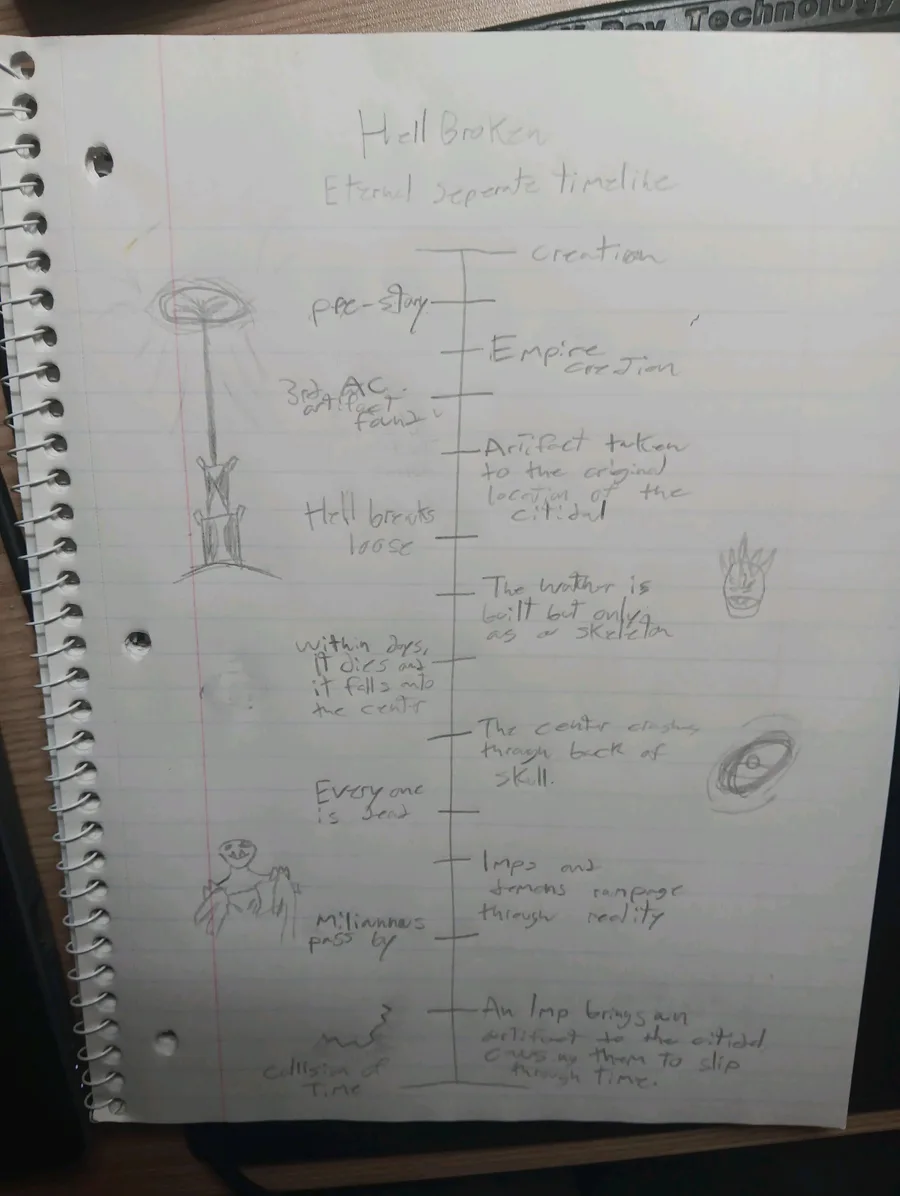 Day Technology
Hell Broken
Eternal seperate timeline
creation
pre-story
Empire
creation
3rd AC
artifact
found
Artifact taken
to the original
location of the
citidal
Hell breaks
loose
The wather is
built but only
as a skeleton
within days,
it dies and
it falls into
the center
The center crashes
through back of
skull.
Everyone
is dead
Imps and
demons rampage
through reality
Miliannas
pass by
An Imp brings an
artifact to the citidal
them to slip
through time.
collision of
Time